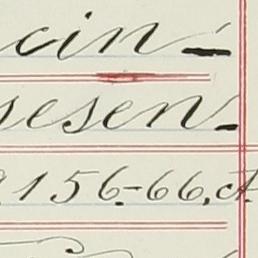 cin-
sesen-
9156-66, A.